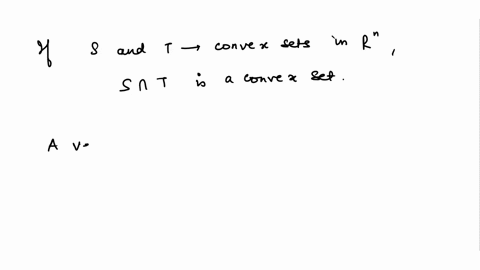 If S and T → convex sets in Rⁿ,
S ∩ T is a convex set.
A v